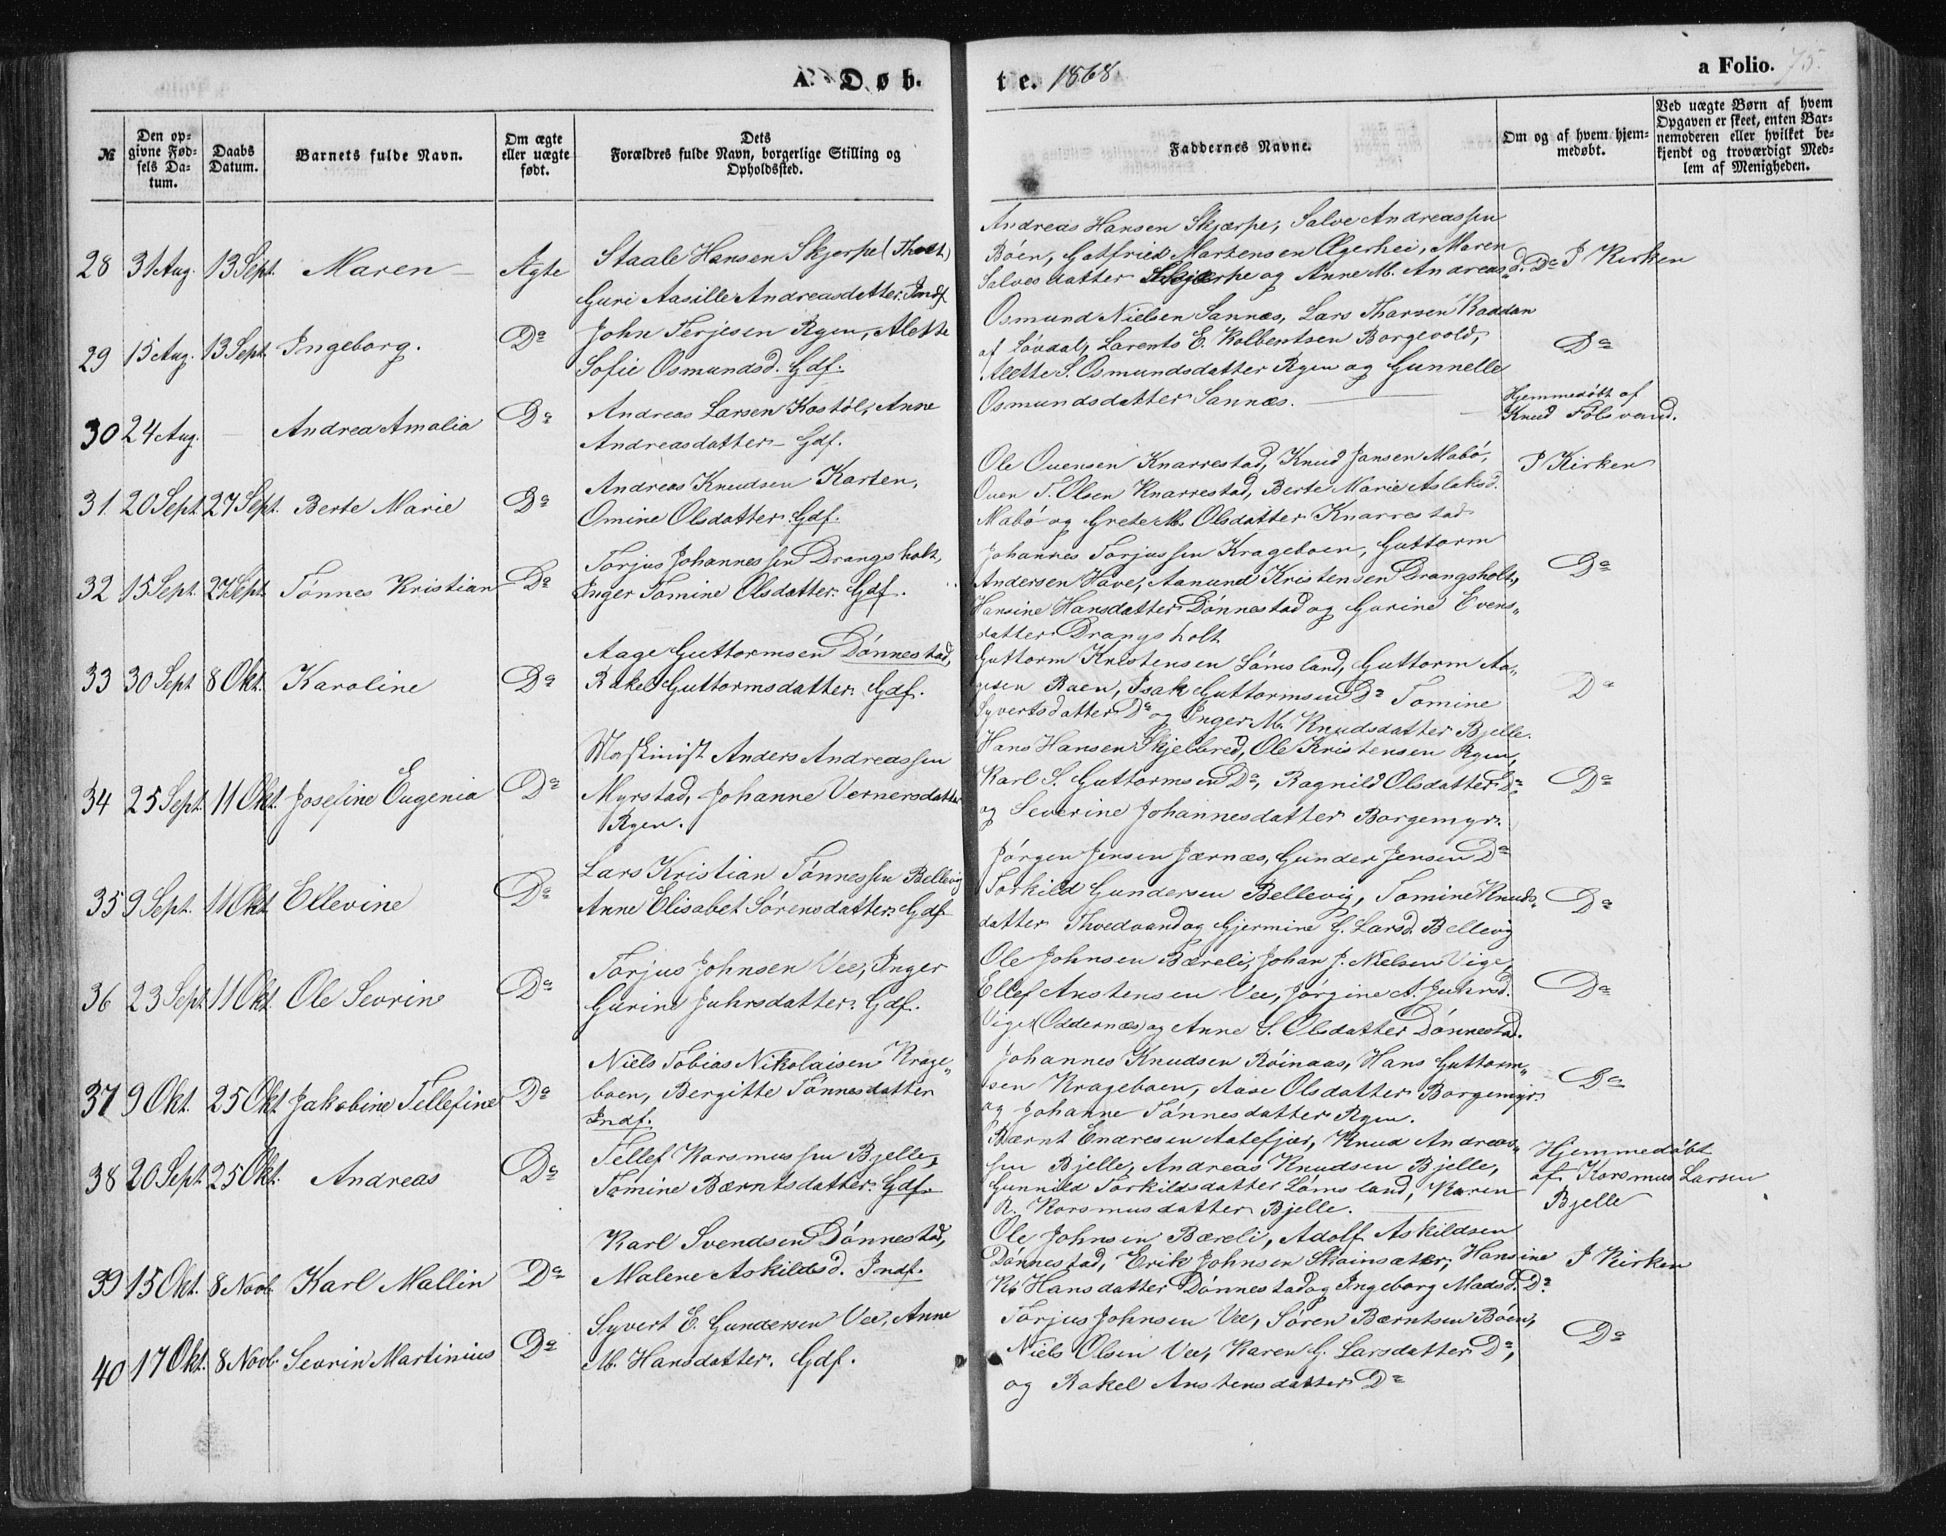 A. Døb.
te. 1868
a Folio. 75.
№
Den opgivne Fødsels Datum.
Daabs Datum.
Barnets fulde Navn.
Om ægte eller uægte født.
Dets Forældres fulde Navn, borgerlige Stilling og Opholdssted.
Faddernes Navne.
Om og af hvem hjemmedøbt.
Ved uægte Børn af hvem Opgaven er skeet, enten Barnemoderen eller hvilket bekjendt og troværdigt Medlem af Menigheden.
28 31 Aug. 13 Sept. Maren Ægte
Staale Hansen Skjerpe (Thvet)
Guri Aasille Andreasdatter. Indf
Andreas Hansen Skjærpe, Salve Andreassen
Bóen, Gatfried Martensen Ægerhei, Maren
Salvesdatter Skjerpe og Anne M. Andreasd. Do
I Kirken
29 15 Aug. 13 Sept. Ingeborg. Do
John Terjesen Rgen, Alette
Sofie Osmundsd. Gdf.
Osmund Nielsen Sannæs, Lars Tharsen Raddan
af Lóvdal, Larents E. Kolbentsen Borgevold,
Alette S. Osmundsdatter Rgen og Gunnelle
Osmundsdatter Sannæs.
Do
30 24 Aug. Andrea Amalia Do
Andreas Larsen Kostól, Anne
Andreasdatter Gdf.
Hjemmedóbt af
Knud Fólsvand.
31 20 Sept. 27 Sept. Berte Marie Do
Andreas Knudsen Karten,
Omine Olsdatter. Gdf.
Ole Ouensen Knarrestad, Knud Jansen Mabó,
Ouen T. Olsen Knarrestad, Berte Marie Aslaksd.
Mabó og Grete M. Olsdatter Knarrestad
I Kirken
32 15 Sept. 27 Sept. Tónnes Kristian Do
Torjus Johannessen Drangsholt,
Inger Tomine Olsdatter. Gdf.
Johannes Torjussen Krageboen, Guttorm
Andersen Have, Aanund Kristensen Drangsholt,
Hansine Hansdatter Dónnestad og Gurine Evens
datter Drangsholt
Do
33 30 Sept 8 Okt. Karoline Do
Aage Guttormsen Dónnestad,
Rakel Guttormsdatter. Gdf.
Guttorm Kristensen Lómsland, Guttorm Aa-
gesen Raen, Isak Guttormsen Do Tomine
Syvertsdatter Do og Inger M. Knudsdatter Bjelle.
Do
34 25 Sept. 11 Okt. Josefine Eugenia Do
Maskinist Anders Andreassen
Myrstad, Johanne Vernersdatter
Rgen.
Hans Hansen Skjelbred, Ole Kristensen Rgen,
Karl S. Guttormsen Do, Ragnild Olsdatter Do
og Severine Johannesdatter Borgemyr.
Do
35 9 Sept. 11 Okt. Ellevine Do
Lars Kristian Tónnessen Bellevig
Anne Elisabet Sórensdatter. Gdf
Jórgen Jensen Jærnæs, Gunder Jensen Do
Torkild Gundersen Bellevig, Tomine Knuds-
datter Thvedvand og Gjermine G. Larsd. Bellevig
Do
36 23 Sept. 11 Okt. Ole Sevrin Do
Torjus Johnsen Vee, Inger
Gurine Juhrsdatter. Gdf.
Ole Johnsen Bæreli, Johan J. Nielsen Vige,
Ellef Anstensen Vee, Jórgine A. Juhrsd.
Vige (Oddernæs) og Anne S. Olsdatter Dónnestad.
Do
37 9 Okt. 25 Okt Jakobine Tellefine Do
Niels Tobias Nikolaisen Krage-
boen, Bergitte Tónnesdatter
Indf.
Johannes Knudsen Róinaas, Hans Guttorm-
sen Krageboen, Aase Olsdatter Borgemyr
og Johanne Tónnesdatter Rgen.
Do
38 20 Sept. 25 Okt. Andreas Do
Tellef Rasmussen Bjelle,
Tomine Bærntsdatter. Gdf
Bærnt Endresen Aatefjær, Knud Andreas-
sen Bjelle, Andreas Knudsen Bjelle,
Gunnild Torkildsdatter Lómsland, Karen
R. Rorsmusdatter Bjelle.
Hjemmedóbt
af Rorsmus Larsen
Bjelle
39 15 Okt. 8 Novb. Karl Mallin Do
Karl Svendsen Dónnestad,
Malene Askildsd. Indf.
Ole Johnsen Bæreli, Adolf Askildsen
Dónnestad, Erik Johnsen Skainsæter, Hansine
K. Hansdatter Dónnestad og Ingeborg Madsd. Do
I Kirken
40 17 Okt. 8 Novb. Sevrin Martinius Do
Syvert E. Gundersen Vee, Anne
M. Hansdatter. Gdf.
Torjus Johnsen Vee, Sóren Bærntsen Bóen,
Niels Olsen Vee, Karen G. Larsdatter Do,
og Rakel Anstensdatter Do
Do